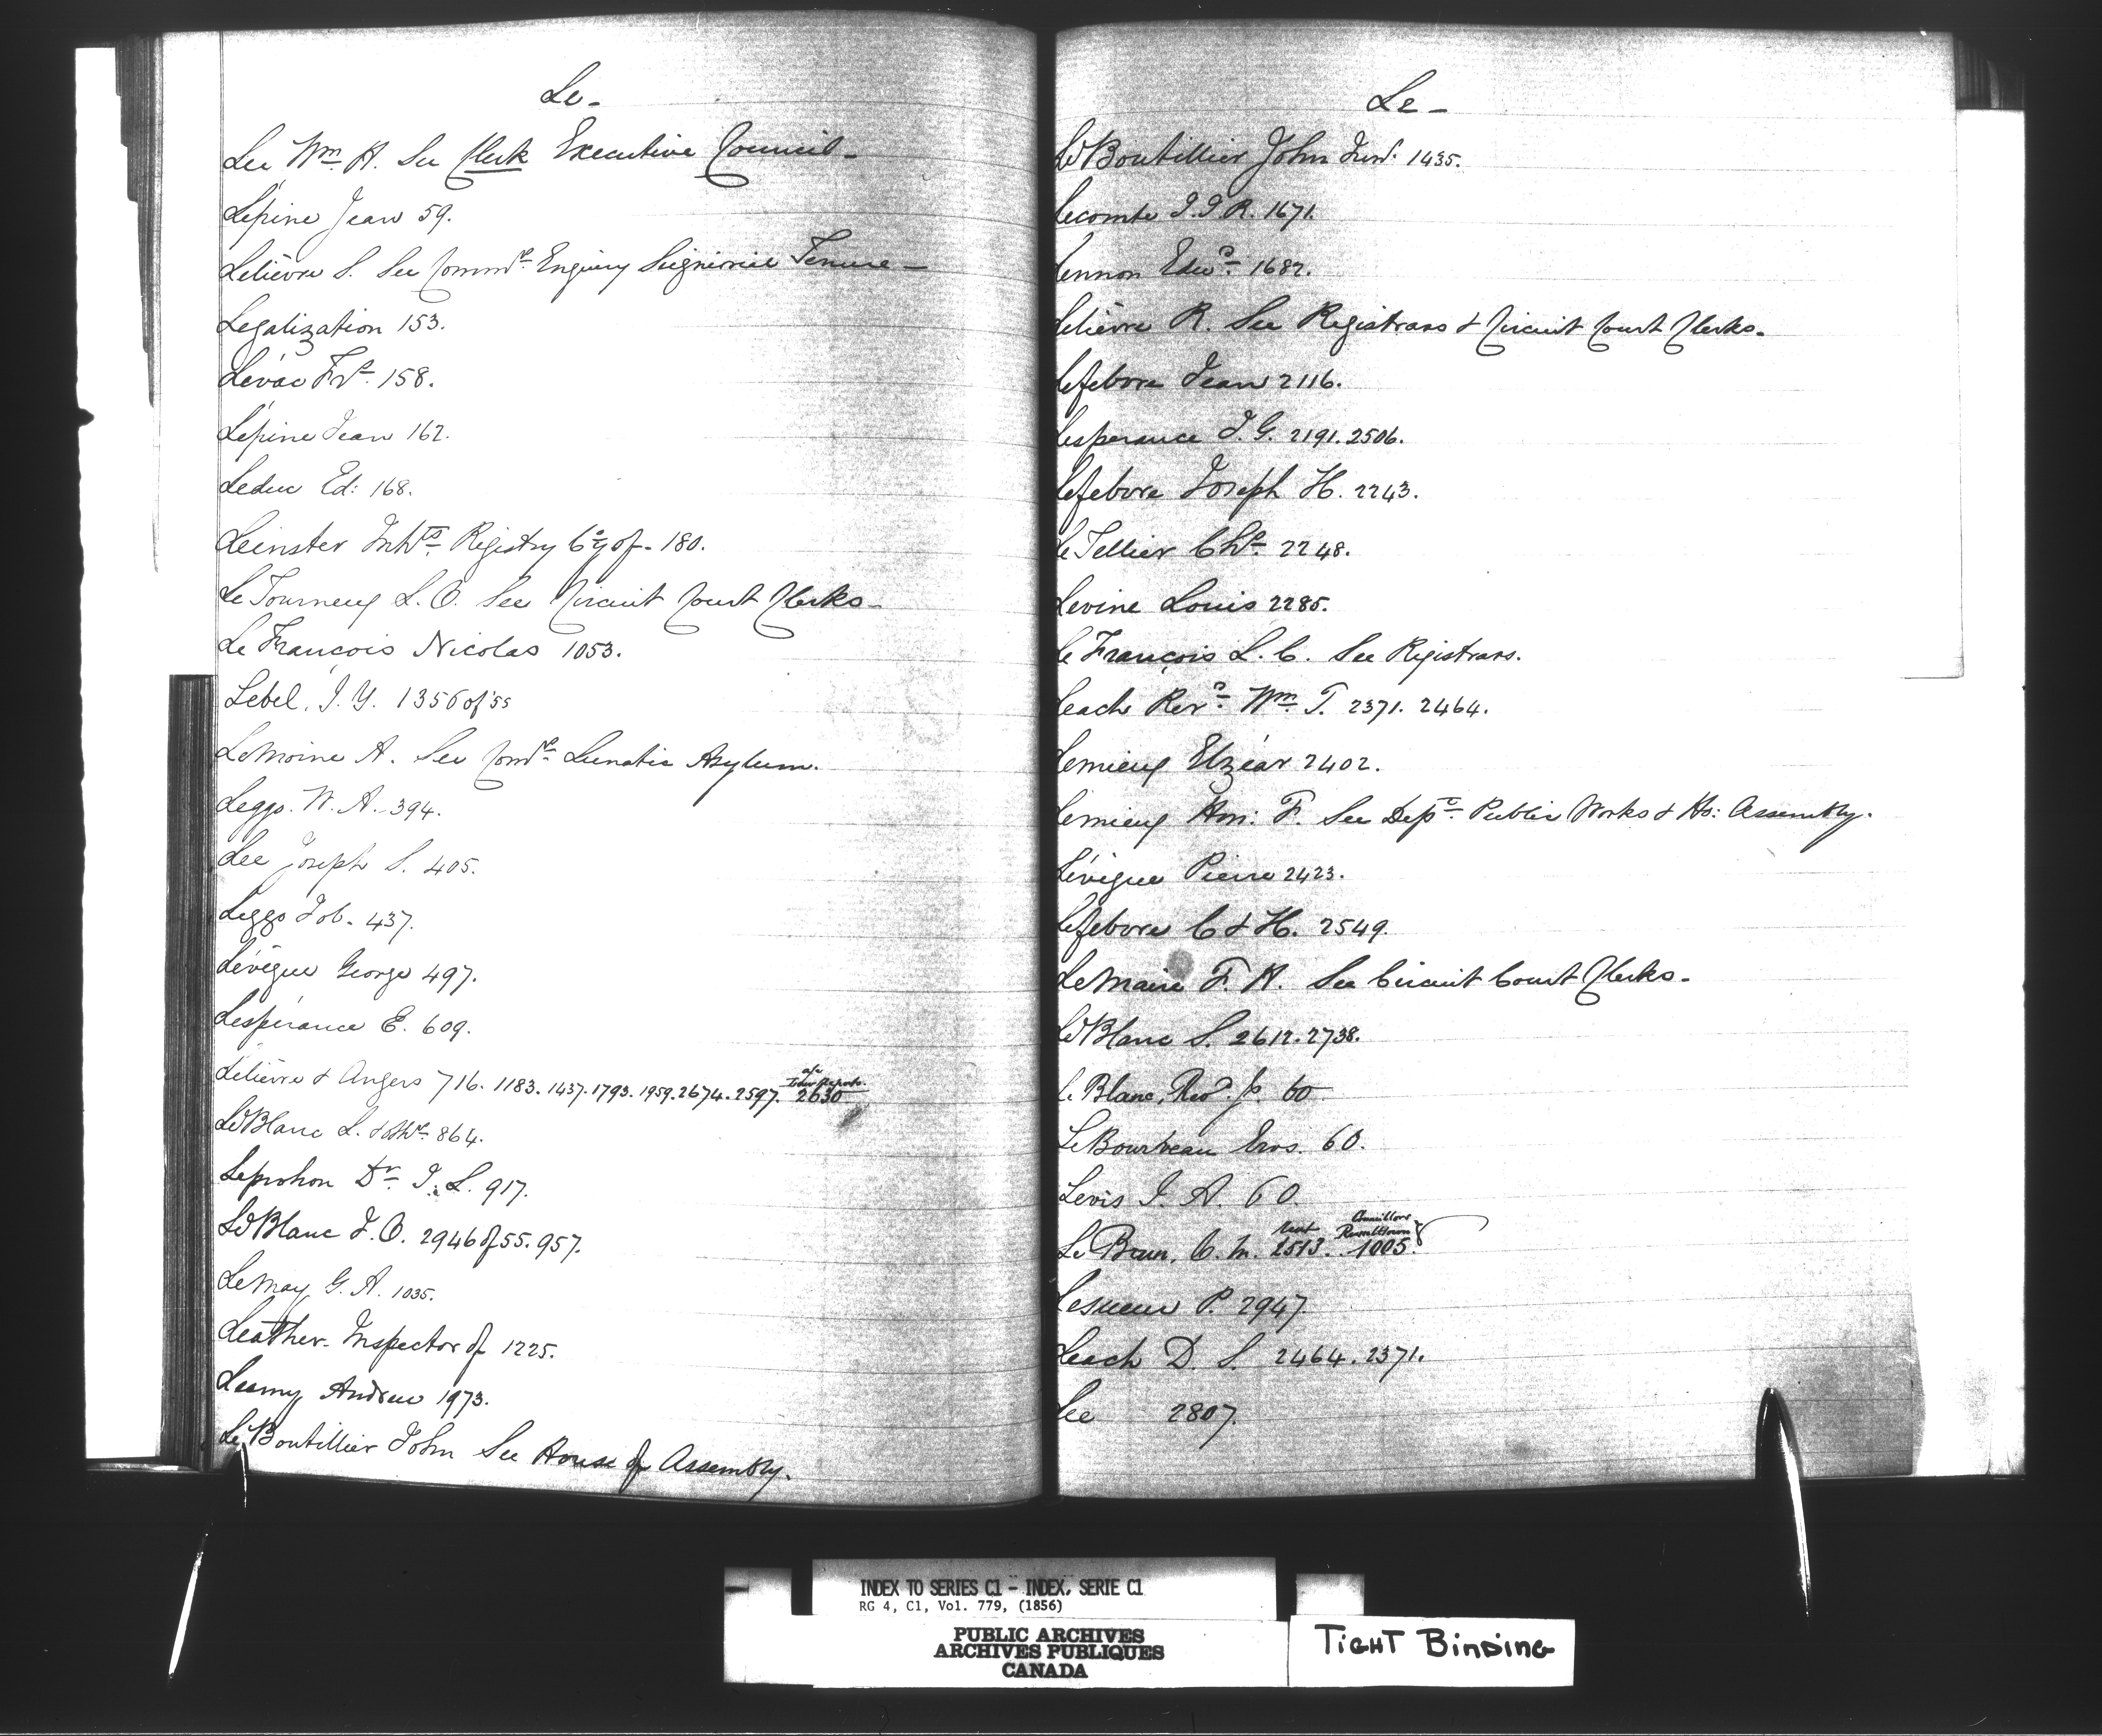 Le-
Lee Wm. H. See Clerk Executive Council-
Lépine Jean 59.
Lelièvre S. See Commrs. Enquiry Seignioral Tenure-
Legalization 153.
Lévac Frs. 158.
Lépine Jean 162.
Leduc Ed: 168.
Leinster Inhts. Registry Cy of- 180.
LeTourneux L. O. See Circuit Court Clerks-
Le François Nicolas 1053.
Lebel, J. Y. 1356 of '55
LeMoine A. See Comrs. Lunatic Asylum.
Leggo. W. A. 394.
Lee Joseph S. 405.
Leggo Job. 437.
Lévèque George 497.
Lespérance E. 609.
Lelièvre & Angers 716. 1183. 1437. 1793. 1959. 2674. 2597. 2630
LeBlanc L. & 864.
Leprohon Dr. J. L. 917.
LeBlanc J. O. 2946 of 55. 957.
LeMay G. A. 1035.
Leather- Inspector of 1225.
Leamy Andrew 1973.
Le Boutillier John See House of Assembly.
Le-
LeBoutillier John Junr. 1435.
Lecomte J. J. R. 1671.
Lennon Edwd. 1682.
Lelièvre R. See Registrars & Circuit Court Clerks-
Lefebvre Jean 2116.
Lesperance J. G. 2191. 2506.
Lefebvre Joseph H. 2243.
LeTellier Chs. 2248.
Levine Louis 2285.
Le François L. C. See Registrars.
Leach Revd. Wm. T. 2371. 2464.
Lemieux Elzéar 2402.
Lemieux Hon: F. See Dept. Public Works & Ho: Assembly.
Lévèque Pierre 2423.
Lefebvre C & H. 2549.
LeMaire F. H. See Circuit Court Clerks-
LeBlanc S. 2612. 2738.
Le Blanc, Revd. 60
LeBourveau Eros. 60.
Levis J. A. 60.
Councillors
Russelltown
Le Brun, C. M. 2513. 1005.
Lesueur P. 2947.
Leach D. S. 2464. 2371.
Lee 2807.
INDEX TO SERIES C1 - INDEX, SERIE C1
RG 4, C1, Vol. 779, (1856)
PUBLIC ARCHIVES
ARCHIVES PUBLIQUES
CANADA
TIGHT BINDING